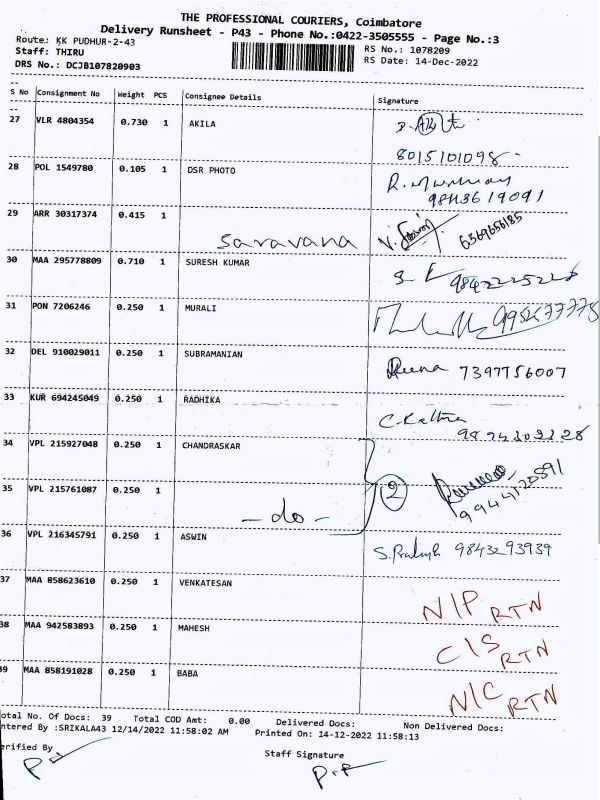 THE PROFESSIONAL COURIERS, Coimbatore
Delivery Runsheet - P43 - Phone No.:0422-3505555 - Page No.:3
Route: KK PUDHUR-2-43 RS No.: 1078209
Staff: THIRU RS Date: 14-Dec-2022
DRS No.: DCJB107820903
S No Consignment No Weight PCS Consignee Details Signature
27 VLR 4804354 0.730 1 AKILA
8015101098
28 POL 1549780 0.105 1 DSR PHOTO
9843619091
29 ARR 30317374 0.415 1
Saravana 6569656185
30 MAA 295778809 0.710 1 SURESH KUMAR
31 PON 7206246 0.250 1 MURALI
32 DEL 910029011 0.250 1 SUBRAMANIAN
7397756007
33 KUR 694245049 0.250 1 RADHIKA
34 VPL 215927048 0.250 1 CHANDRASKAR
35 VPL 215761087 0.250 1 2
- do - 9944120591
36 VPL 216345791 0.250 1 ASWIN
9843293939
37 MAA 858623610 0.250 1 VENKATESAN
N/P RTN
38 MAA 942583893 0.250 1 MAHESH
C/S RTN
39 MAA 858191028 0.250 1 BABA
N/C RTN
otal No. Of Docs: 39 Total COD Amt: 0.00 Delivered Docs: Non Delivered Docs:
ntered By :SRIKALA43 12/14/2022 11:58:02 AM Printed On: 14-12-2022 11:58:13
erified By
Staff Signature